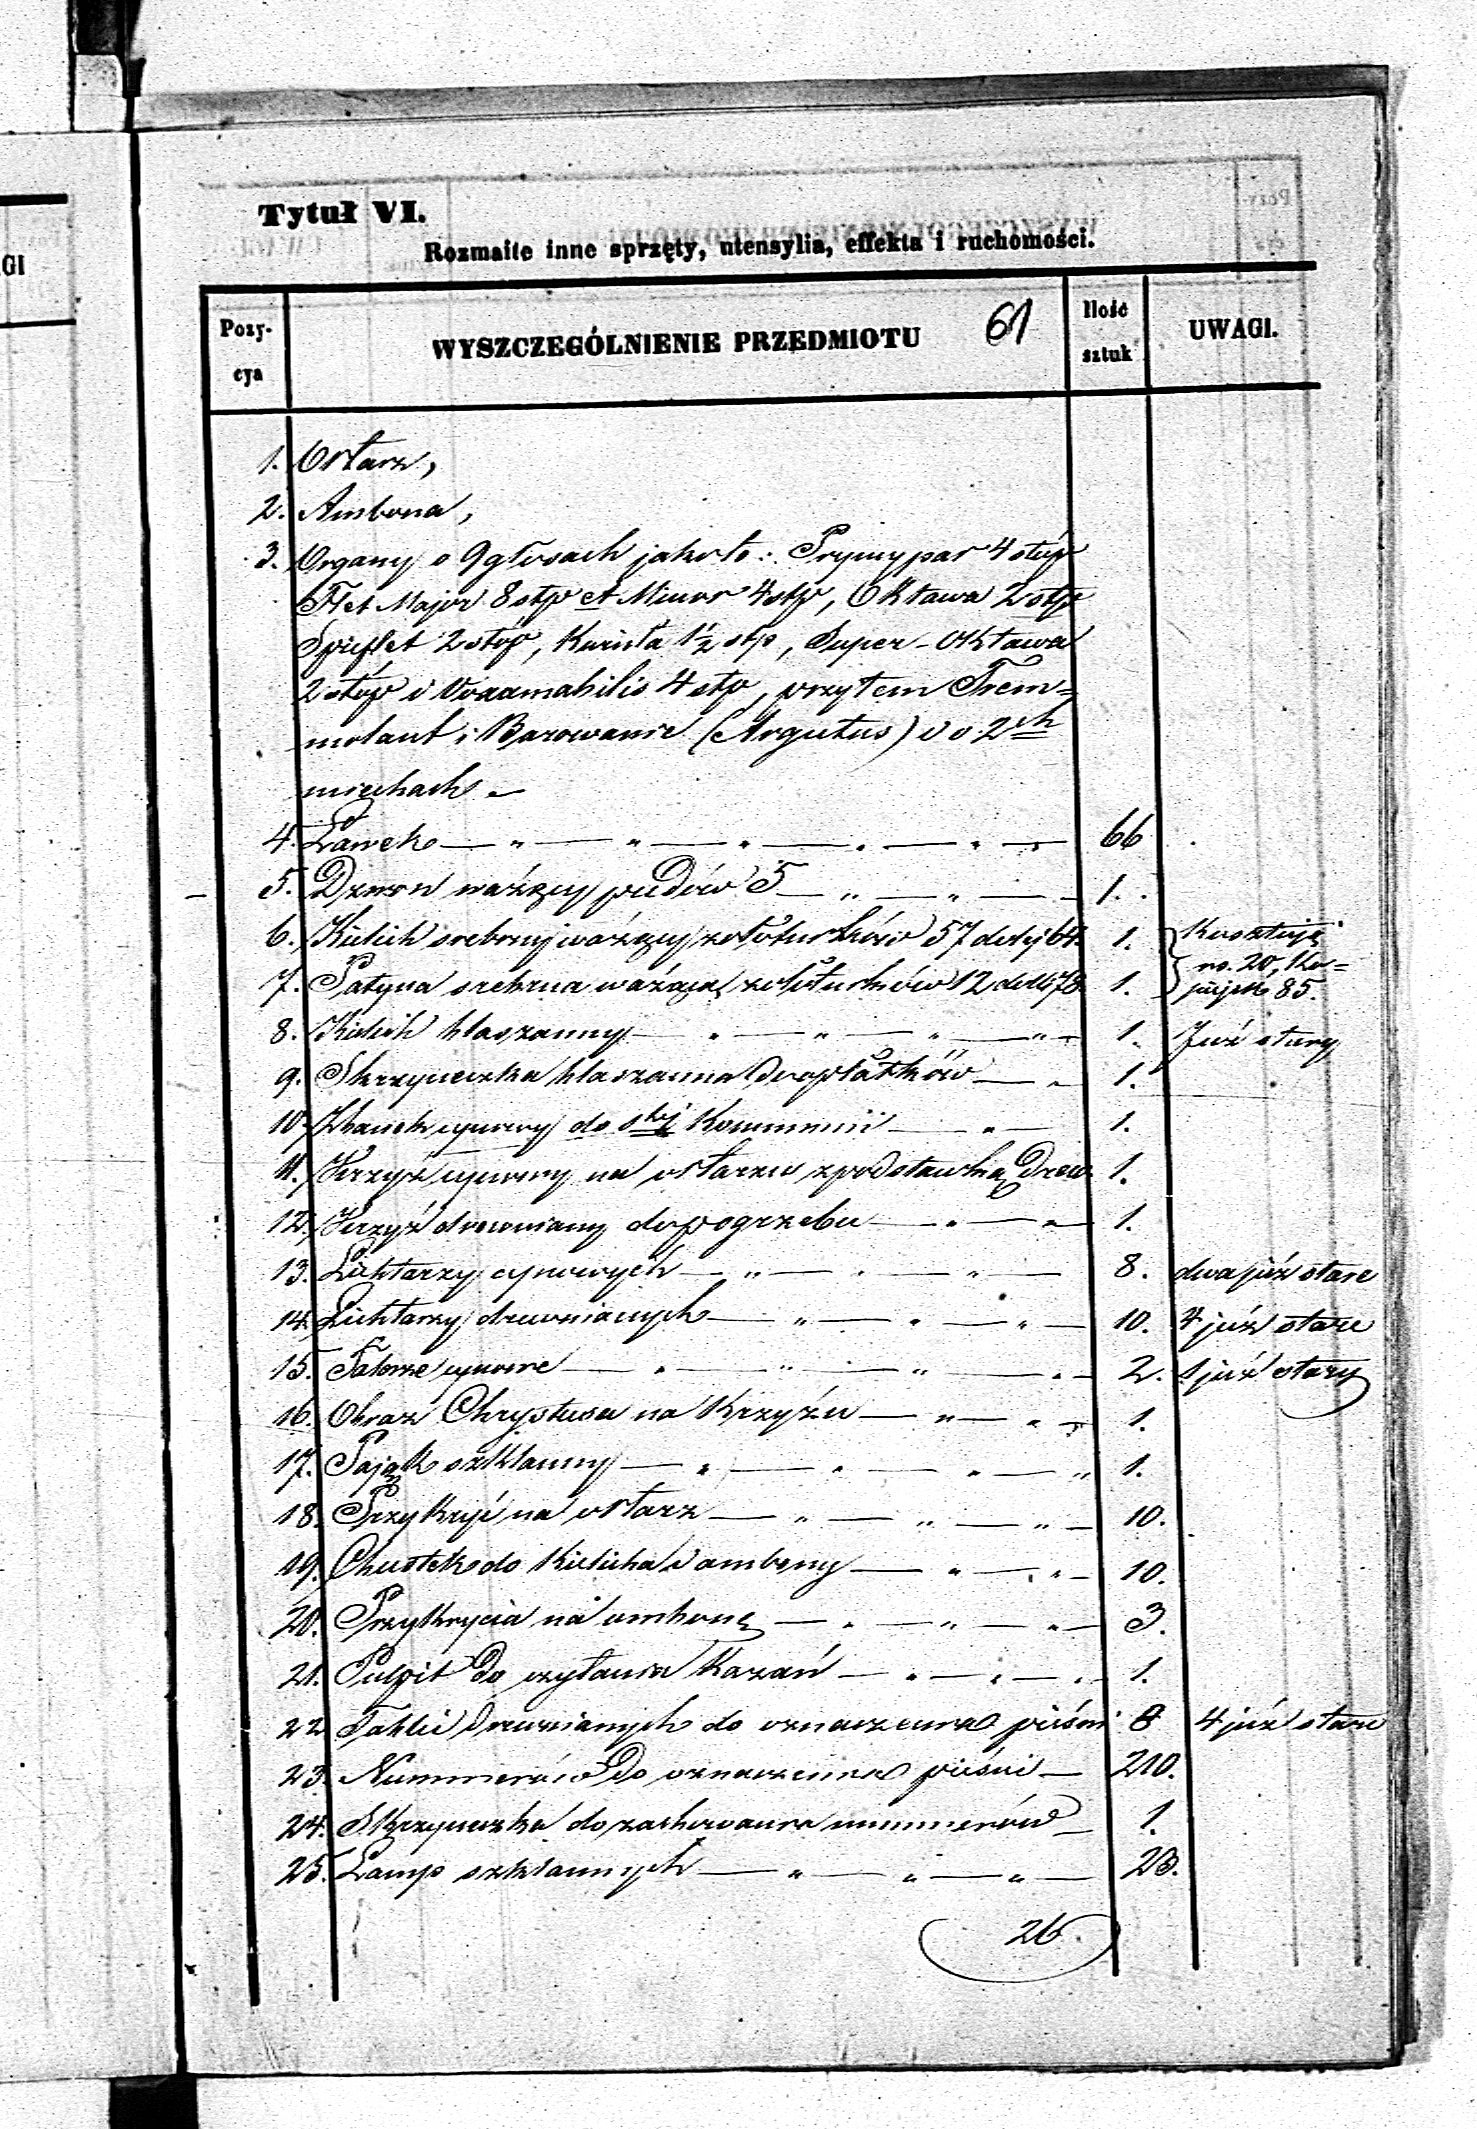 GI
Tytuł VI.
Rozmaite inne sprzęty, utensylia, effekta i ruchomości.
Pozy-
cya
WYSZCZEGÓLNIENIE PRZEDMIOTU
61
Ilość
sztuk
UWAGI.
1. Ołtarz,
2. Ambona,
3. Organy o 9 głosach jakoto: Prymypar 4 stóp
Flet Major 8 stp et Minor 4 stp, Oktawa 2 stp
Spielflet 2 stóp, Kwinta 1½ stp, Super-Oktawa
2 stóp i Voxamabilis 4 stp, przytem Trem=
molant i Basowanie (Argutus) i o 2ch
miechach.
4. Ławek — " — " — " — " — " — 66
5. Dzwon ważący pudów 5 — " — " — 1.
6. Kielich srebrny ważący zołotników 57 doley 64. 1. Kosztują
7. Patyna srebrna ważąca zołotników 12 doley 78. 1. rs. 20, Ko=
piejek 85.
8. Kielich blaszanny — " — " — " — " — 1. Już stary
9. Skrzyneczka blaszanna do opłatków — " 1.
10. Dzbanek cynowy do Stej Kommunii — " — 1.
11. Krzyż cynowy na ołtarzu z podstawką drew. 1.
12. Krzyż drewniany do pogrzebu — " — " — 1.
13. Lichtarzy cynowych — " — " — " — 8. dwa już stare
14. Lichtarzy drewnianych — " — " — " — 10. 4 już stare
15. Talerze cynowe — " — " — " — " — 2. 1 już stary
16. Obraz Chrystusa na Krzyżu — " — " — 1.
17. Pająk szklanny — " — " — " — " 1.
18. Przykryć na ołtarz — " — " — " — 10.
19. Chustek do Kielicha i ambony — " — " — 10.
20. Przykrycia na ambonę — " — " — " — 3.
21. Pulpit do czytania Kazań — " — " — " 1.
22. Tablic drewnianych do oznaczenia pieśni 8 4 już stare
23. Nummerów do oznaczenia pieśni — 210.
24. Skrzyneczka do zachowania nummerów — 1.
25. Lamp szklannych — " — " — " — 23.
26.